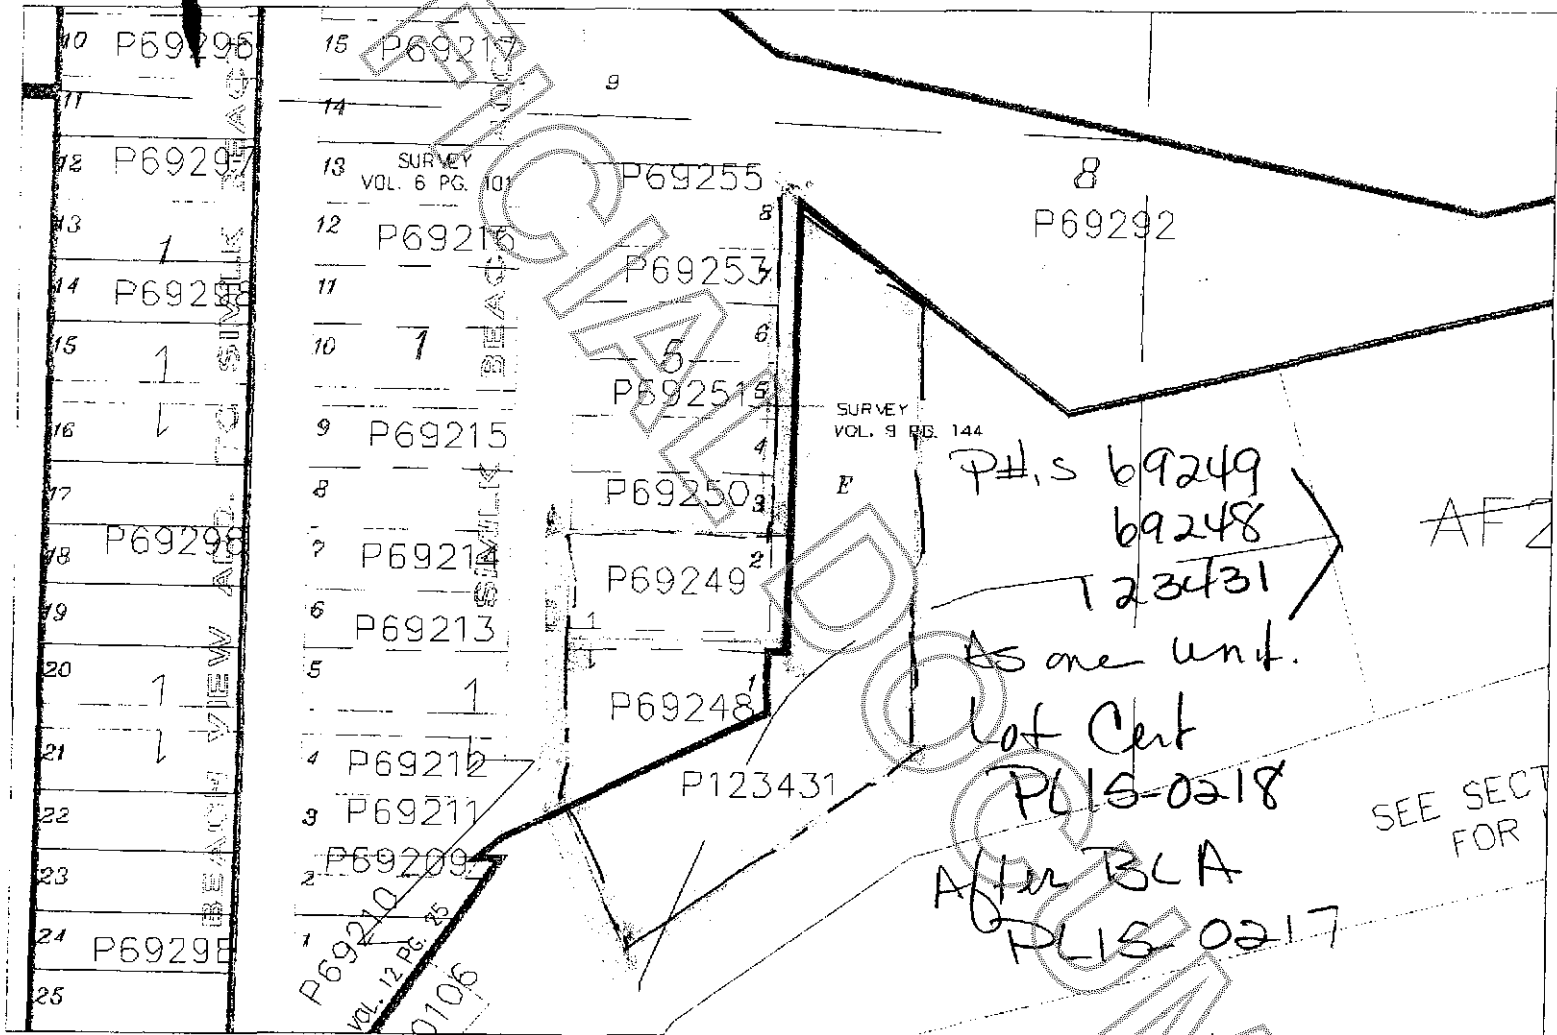 10 P69296
11
12 P69297
13
1
14 P69298
15
1
1
16
17
18 P69298
19
20
1
21
1
22
23
24 P69298
25
BEACH VIEW ADD. TO SIMILK BEACH
15 P69217
14
13
SURVEY
VOL. 6 PG. 101
12 P69216
11
10 1
9 P69215
8
7 P69214
6 P69213
5
1
4 P69212
3 P69211
2 P69209
1
P69210
VOL. 12 PG. 25
0106
SIMILK BEACH
9
P69255
8
P69253
7
6
5
P69251 5
4
P69250 3
P69249 2
1
P69248 1
P123431
8
P69292
SURVEY
VOL. 9 PG. 144
E
P#,s 69249
69248
123431
As one unit.
Lot Cert
PL15-0218
After BLA
PL15-0217
AF2
SEE SECT
FOR
FICIAL DOCUM